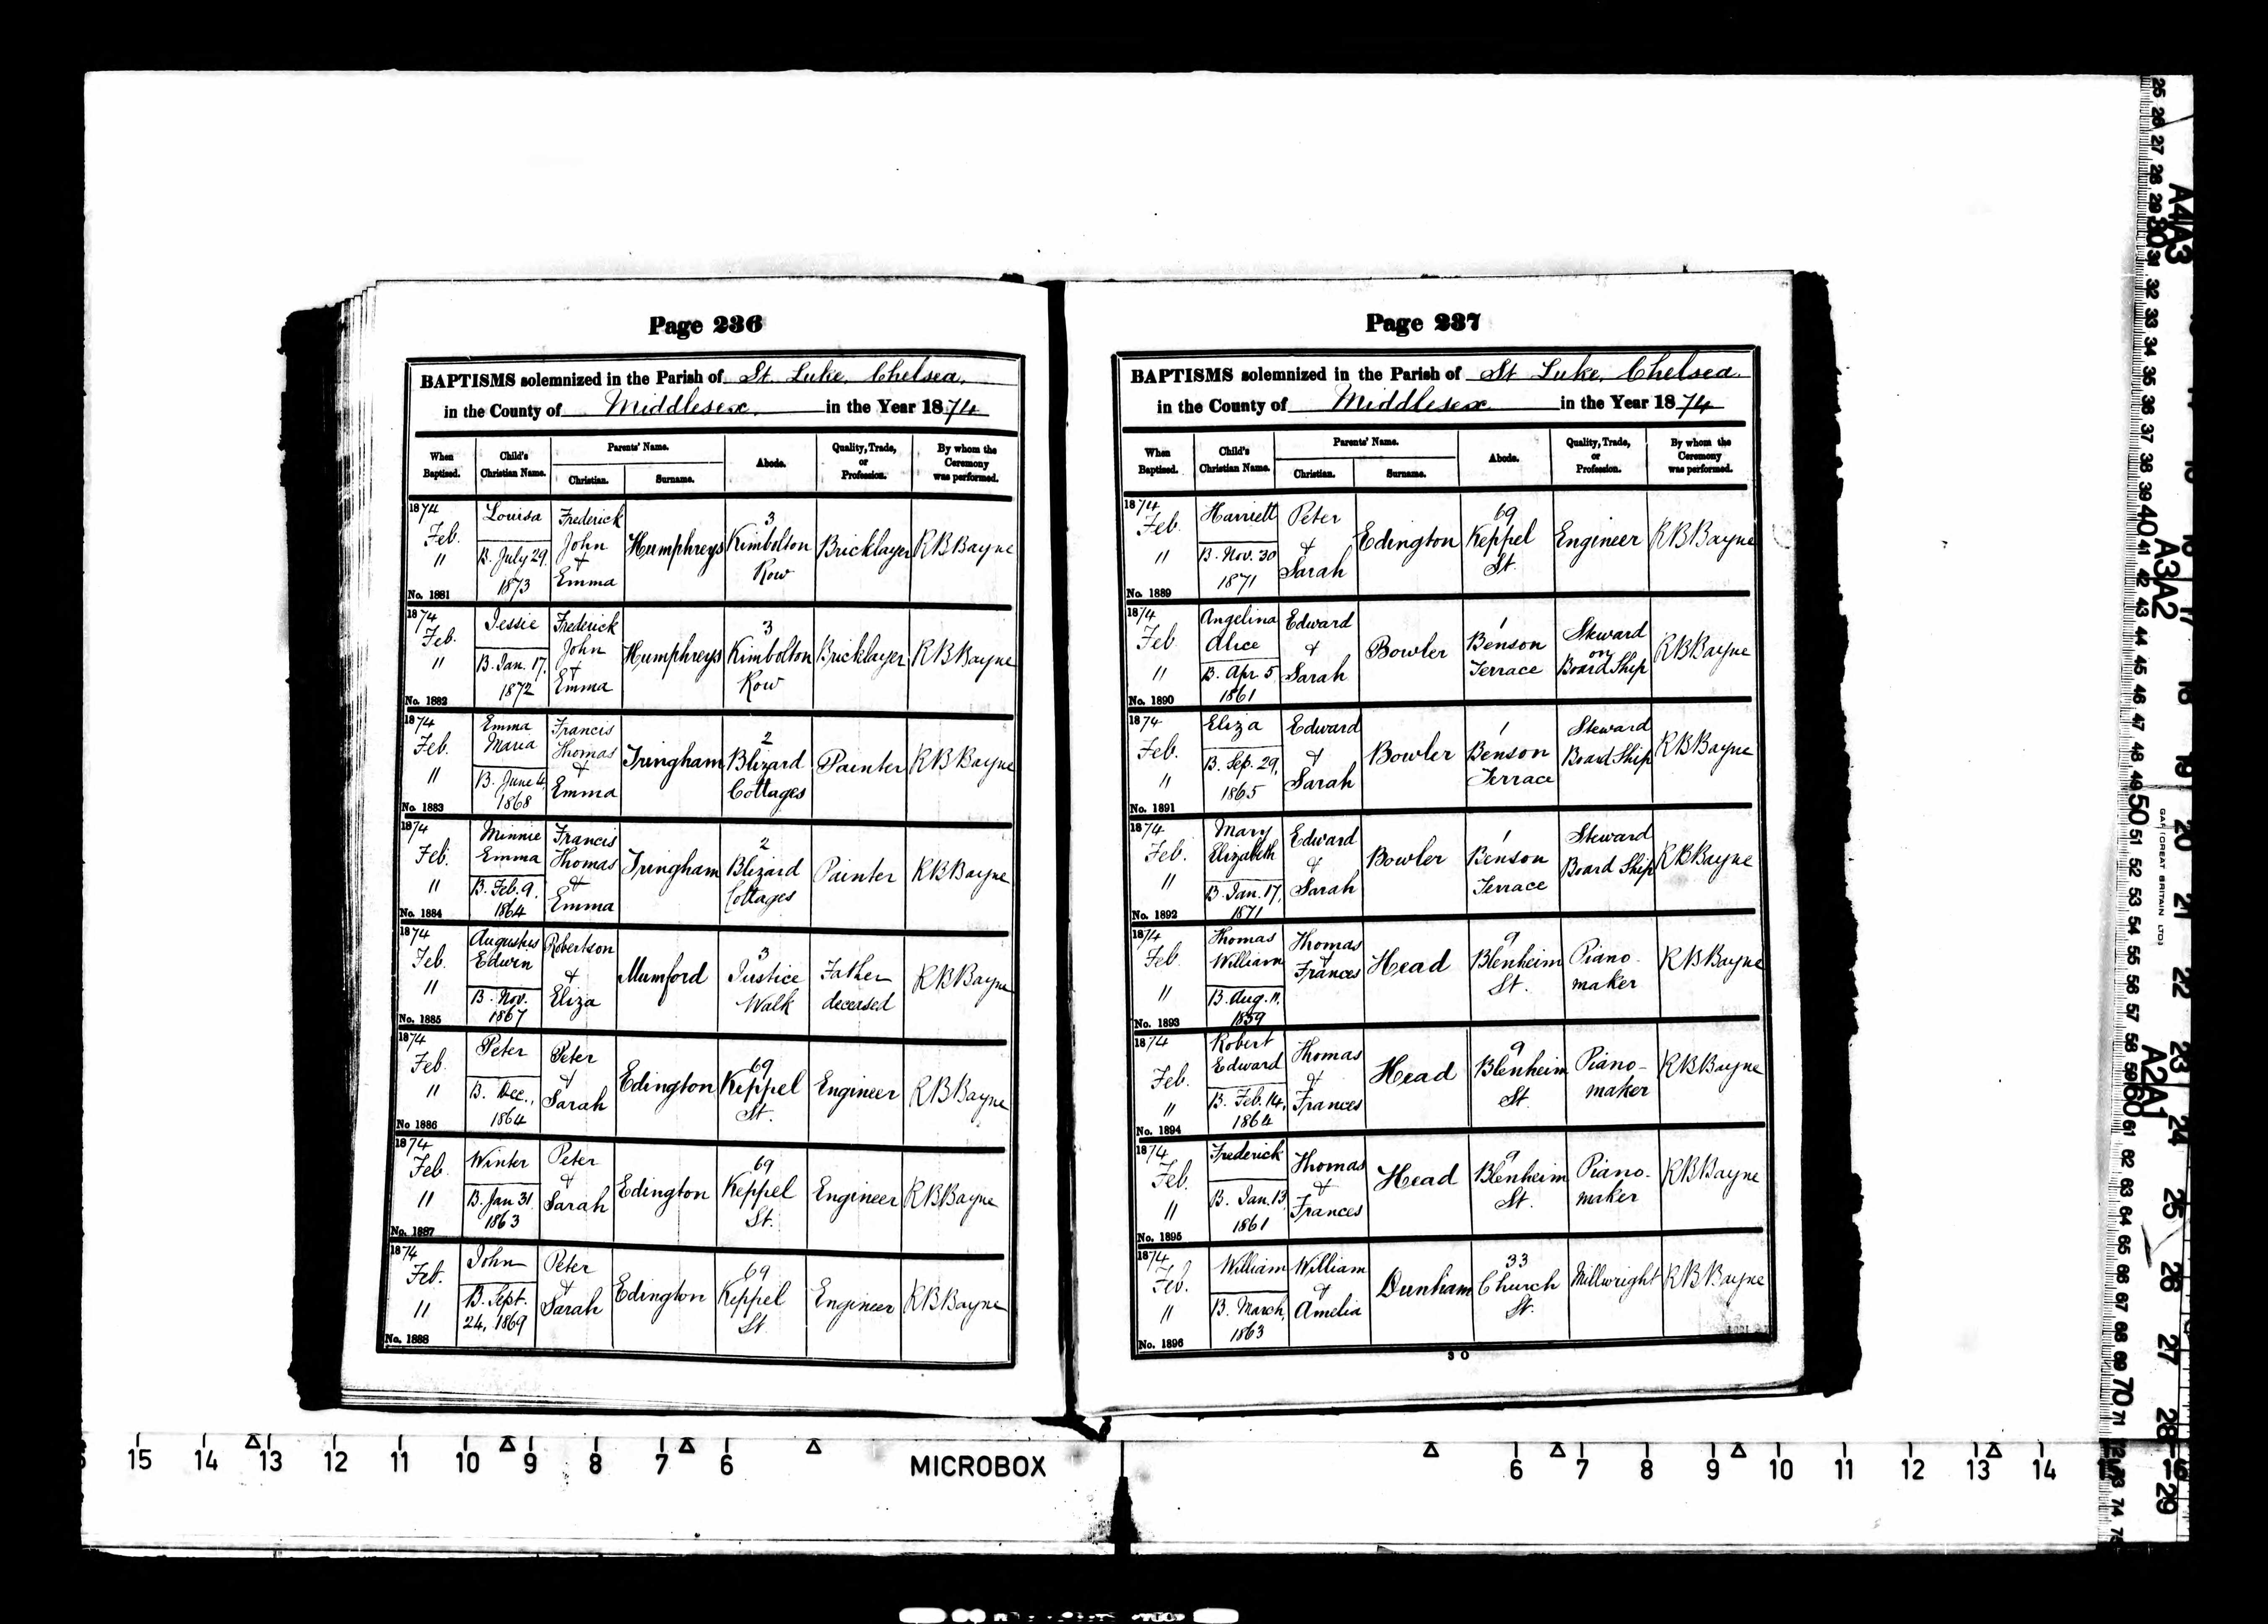 Page 236
BAPTISMS solemnized in the Parish of St. Luke, Chelsea,
in the County of Middlesex. in the Year 1874
When Baptized. Child's Christian Name. Parents' Name. Christian. Surname. Abode. Quality, Trade, or Profession. By whom the Ceremony was performed.
1874 Feb. 11 No. 1881 Louisa B. July 29, 1873 Frederick John & Emma Humphreys 3 Kimbolton Row Bricklayer RBBayne
1874 Feb. 11 No. 1882 Jessie B. Jan. 17, 1872 Frederick John & Emma Humphreys 3 Kimbolton Row Bricklayer RBBayne
1874 Feb. 11 No. 1883 Emma Maria B. June 4, 1868 Francis Thomas & Emma Tringham 2 Blizard Cottages Painter RBBayne
1874 Feb. 11 No. 1884 Minnie Emma B. Feb. 9, 1864 Francis Thomas & Emma Tringham 2 Blizard Cottages Painter RBBayne
1874 Feb. 11 No. 1885 Augustus Edwin B. Nov. 1867 Robertson & Eliza Mumford 3 Justice Walk Father deceased RBBayne
1874 Feb. 11 No 1886 Peter B. Dec., 1864 Peter & Sarah Edington 69 Keppel St. Engineer RBBayne
1874 Feb. 11 No. 1887 Winter B. Jan 31 1863 Peter & Sarah Edington 69 Keppel St. Engineer RBBayne
1874 Feb. 11 No. 1888 John B. Sept. 24, 1869 Peter & Sarah Edington 69 Keppel St Engineer RBBayne
Page 237
BAPTISMS solemnized in the Parish of St Luke, Chelsea.
in the County of Middlesex in the Year 1874
When Baptized. Child's Christian Name. Parents' Name. Christian. Surname. Abode. Quality, Trade, or Profession. By whom the Ceremony was performed.
1874 Feb. 11 No. 1889 Harriett B. Nov. 30 1871 Peter & Sarah Edington 69 Keppel St. Engineer RBBayne
1874 Feb 11 No. 1890 Angelina Alice B. Apr 5, 1861 Edward & Sarah Bowler 1 Benson Terrace Steward on Board Ship RBBayne
1874 Feb. 11 No. 1891 Eliza B. Sep. 29, 1865 Edward & Sarah Bowler 1 Benson Terrace Steward Board Ship RBBayne
1874 Feb. 11 No. 1892 Mary Elizabeth B. Jan. 17, 1871 Edward & Sarah Bowler 1 Benson Terrace Steward Board Ship RBBayne
1874 Feb. 11 No. 1893 Thomas William B. Aug. 11, 1859 Thomas & Frances Head 9 Blenheim St. Piano-maker RBBayne
1874 Feb. 11 No. 1894 Robert Edward B. Feb. 14, 1864 Thomas & Frances Head 9 Blenheim St. Piano-maker RBBayne
1874 Feb. 11 No. 1895 Frederick B. Jan. 13, 1861 Thomas & Frances Head 9 Blenheim St. Piano-maker RBBayne
1874 Feb. 11 No. 1896 William B. March, 1863 William & Amelia Dunham 33 Church St. Millwright RBBayne
30
15 14 13 12 11 10 9 8 7 6 MICROBOX 6 7 8 9 10 11 12 13 14
A4 A3
A3 A2
A2 A1
GAF (GREAT BRITAIN LTD)